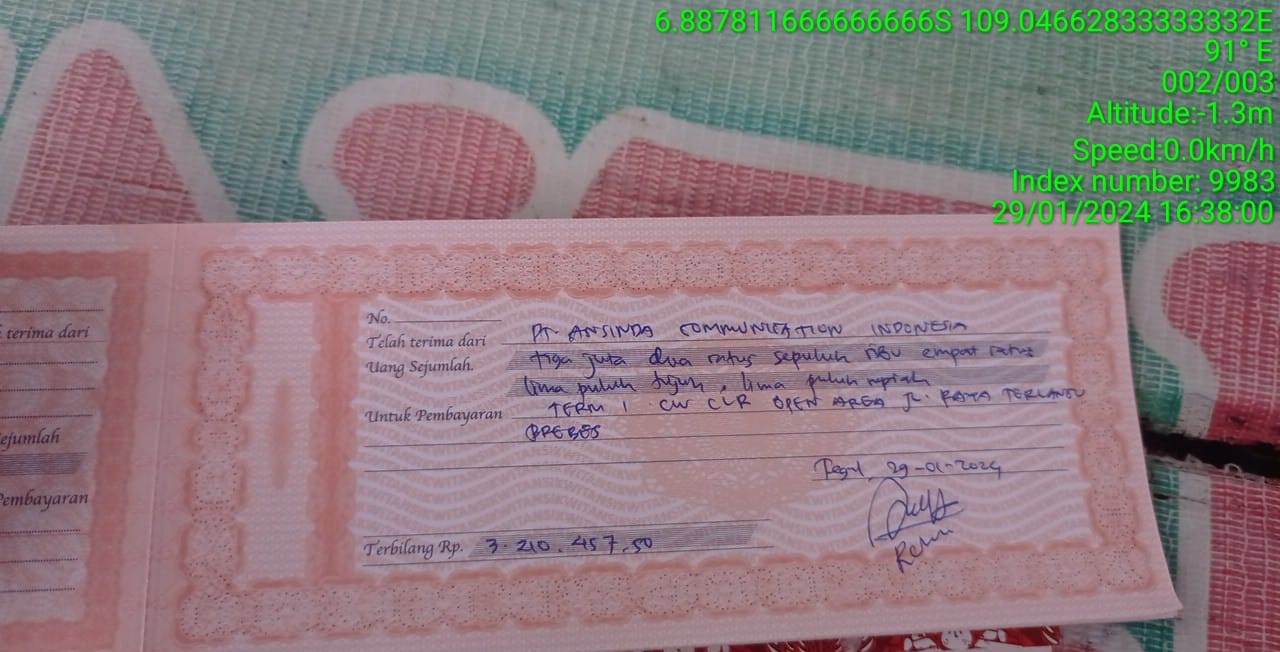 6.887811666666666S 109.04662833333332E
91° E
002/003
Altitude:-1.3m
Speed:0.0km/h
Index number: 9983
29/01/2024 16:38:00
terima dari
ejumlah
Pembayaran
No.
Telah terima dari PT. ANSINDA COMMUNICATION INDONESIA
Uang Sejumlah. tiga juta dua ratus sepuluh ribu empat ratus
lima puluh tujuh, lima puluh rupiah
Untuk Pembayaran TERM 1 CW CLR OPEN AREA JL. RAYA TERLANGU
BREBES
Tegal 29-01-2024
Terbilang Rp. 3.210.457,50